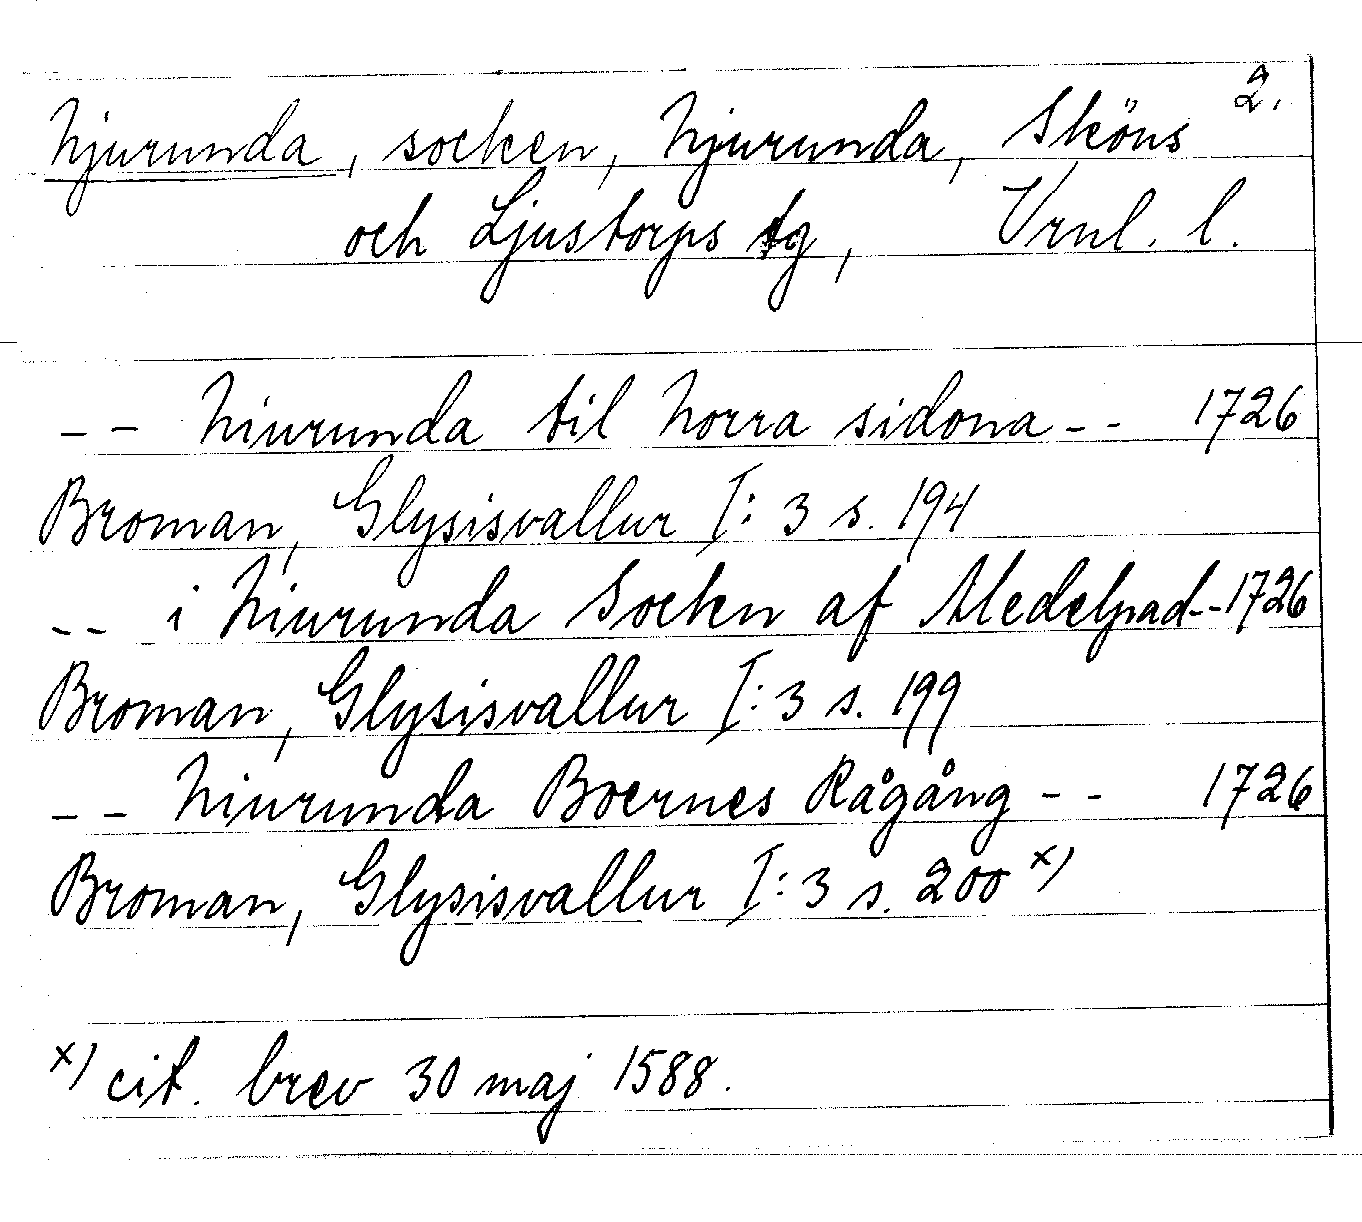 2.
Njurunda, socken, Njurunda, Sköns
och Ljustorps tg, Vrnl. l.
-- Niurunda til Norra sidona -- 1726
Broman, Glysisvallur I: 3 s. 194
-- i Niurunda Socken af Medelpad -- 1726
Broman, Glysisvallur I: 3 s. 199
-- Niurunda Boernes Rågång -- 1726
Broman, Glysisvallur I: 3 s. 200 x)
x) cit. brev 30 maj 1588.